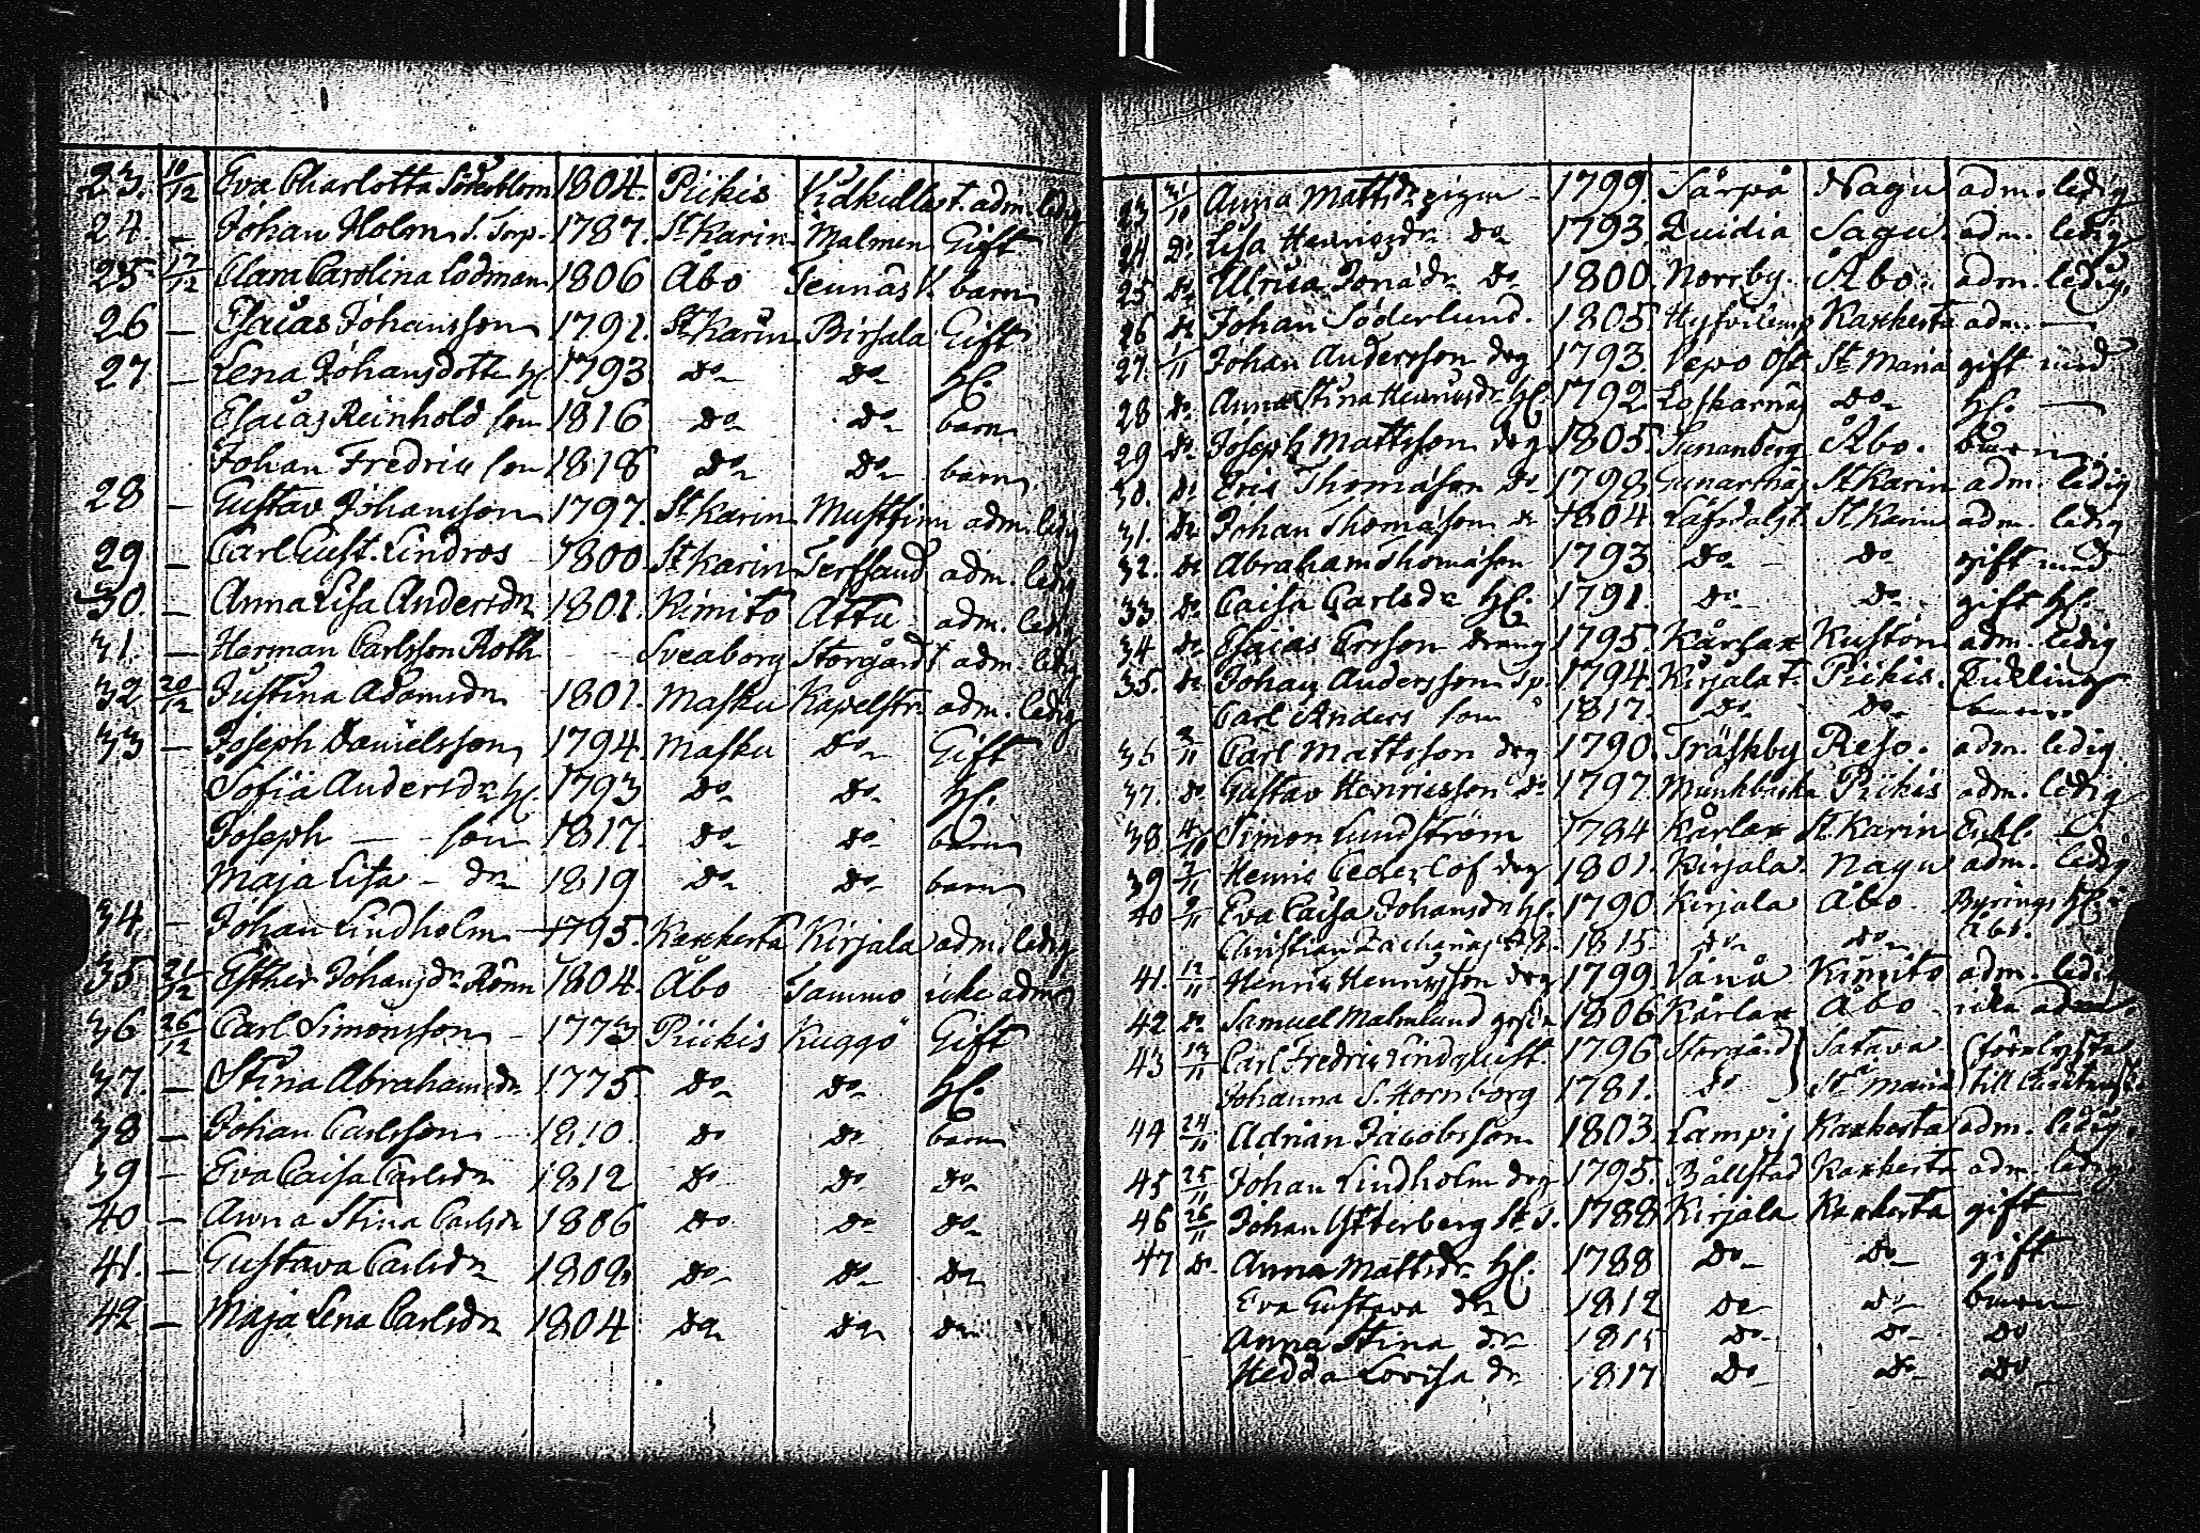 23. 10/12 Eva Charlotta Söderblom 1804. Piikis Vidkulla t. adm. ledig
24. — Johan Holm S. Torp. 1787. St Karin Malmen Gift
25 17/12 Clara Carolina Lodman 1806 Åbo barn
26 — Esaias Johansson 1792. St Karin Birsala Gift
27 — Lena Johansdotter H. 1793 do do H.
Esaias Reinhold son 1816 do do barn
Johan Fredric son 1818 do do barn
28 — Gustav Johansson 1797. St Karin Mustfinn adm. ledig
29 — Carl Gust. Lindros 1800. St Karin adm. ledig
30. — Anna Lisa Andersdr 1801. Kimito Attu adm. ledig
31. — Herman Carlsson Roth Sveaborg Storgård adm. ledig
32 20/12 Justina Adamsdr 1801. Masku Kapelstr. adm. ledig
33 — Joseph Danielsson 1794. Masku do Gift
Sofia Andersdr H. 1793 do do H.
Joseph — son 1817. do do barn
Maja Lisa — dr 1819 do do barn
34. — Johan Lindholm 1795. Kaxkerta Kirjala adm. ledig
35 21/12 Esther Johansdr Rönn 1804. Åbo Sammo icke adm.
36 26/12 Carl Simonsson 1773 Piikis Kuggö Gift
37. — Stina Abrahamsdr 1775. do do H.
38 — Johan Carlsson 1810. do do barn
39 — Eva Caisa Carlsdr 1812 do do do
40 — Anna Stina Carlsdr 1806 do do do
41. — Gustava Carlsdr 1808 do do do
42 — Maja Lena Carlsdr 1804 do do do
23 31/10 Anna Mattsdr pigan 1799. Särpå Nagu adm. ledig
24 do Lisa Henricsdr do 1793. Qvidia Sagu adm. ledig
25 do Ulrica Jonasdr do 1800. Norrby Åbo. adm. ledig
26 do Johan Söderlund. 1805. Kaxkerta adm. —
27. 1/11 Johan Andersson drg 1793. Vepo Öst. St Maria gift med
28 do Anna Stina Henricsdr H. 1792. Lofkarnäs do H. —
29 do Joseph Mattsson drg 1805. Åbo. barn.
30. do Eric Thomasson do 1798 Gunarnäs St Karin adm. ledig
31. do Johan Thomasson do 1804 St Karin adm. ledig
32. do Abraham Thomasson 1793. do do gift med
33 do Caisa Carlsdr H. 1791. do do gift H.
34 do Esaias Ersson dräng 1795. Kårlax Kustön adm. ledig
35. do Johan Andersson Sp. 1794. Kirjala t. Piikis.
Carl Anders son 1817. do do barn
36 2/11 Carl Mattsson drg 1790. Träskby Reso. adm. ledig
37. do Gustav Henricsson do 1797. Munkbacka Piikis adm. ledig
38 Simon Lundström 1784 Kårlax St Karin Enkl. —
39 Henric Cederlöf drg 1801. Kirjala. Nagu adm. ledig
40 9/11 Eva Caisa Johansdr H. 1790. Kirjala Åbo Byrings H. i
Christian Zacharias 1815. do do Åbo.
41. 12/11 Henric Henricsson drg 1799. Vånå Kimito adm. ledig
42 do Samuel Malmlund 1806 Kårlax Åbo icke adm.
43 13/11 Carl Fredric Lindqvist 1796 Storgård Satava
Johanna S. Hornborg 1781. do St Maria till
44 24/11 Adrian Jacobsson 1803. Lampis Kaxkerta adm. ledig.
45 25/11 Johan Lindholm drg 1795. Bållstad Kaxkerta adm. ledig.
46 26/11 Johan Ytterberg St. S. 1788 Kirjala Kaxkerta gift
47 do Anna Mattsdr H. 1788 do do gift
Eva Gustava dr 1812 do do barn
Anna Stina dr 1815 do do do
Hedda Lovisa dr 1817 do do do